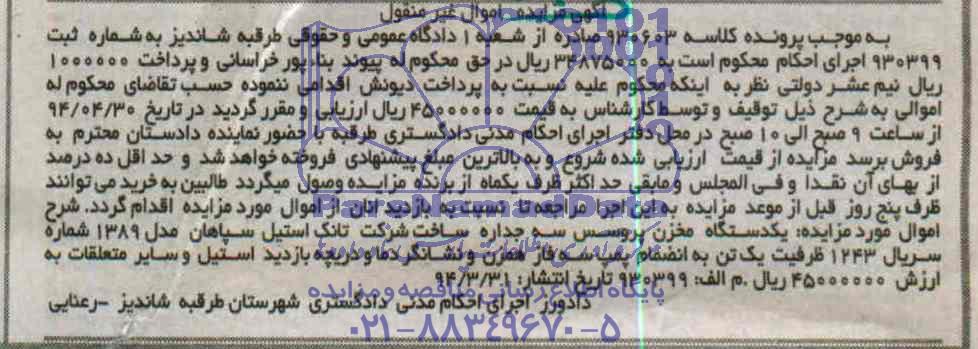 آگهی مزایده اموال غیر منقول
به موجب پرونده کلاسه ۹۳۰۶۰۳ صادره از شعبه ۱ دادگاه عمومی و حقوقی طرقبه شاندیز به شماره ثبت
۹۳۰۳۹۹ اجرای احکام محکوم است به ۳۴۸۷۵۰۰۰ ریال در حق محکوم له پیوند بنادپور خراسانی و پرداخت ۱۰۰۰۰۰۰
ریال نیم عشر دولتی نظر به اینکه محکوم علیه نسبت به پرداخت دیونش اقدامی ننموده حسب تقاضای محکوم له
اموالی به شرح ذیل توقیف و توسط کارشناس به قیمت ۴۵۰۰۰۰۰۰ ریال ارزیابی و مقرر گردید در تاریخ ۹۴/۰۴/۳۰
از ساعت ۹ صبح الی ۱۰ صبح در محل دفتر اجرای احکام مدنی دادگستری طرقبه با حضور نماینده دادستان محترم به
فروش برسد مزایده از قیمت ارزیابی شده شروع و به بالاترین مبلغ پیشنهادی فروخته خواهد شد و حد اقل ده درصد
از بهای آن نقدا و فی المجلس و مابقی حد اکثر ظرف یکماه از برنده مزایده وصول میگردد طالبین به خرید می توانند
ظرف پنج روز قبل از موعد مزایده به این اجرا مراجعه تا نسبت به بازدید آنان از اموال مورد مزایده اقدام گردد. شرح
اموال مورد مزایده: یکدستگاه مخزن پروسس سه جداره ساخت شرکت تانک استیل سپاهان مدل ۱۳۸۹ شماره
سریال ۱۲۴۳ ظرفیت یک تن به انضمام پمپ سه فاز همزن و نشانگر دما و دریچه بازدید استیل و سایر متعلقات به
ارزش ۴۵۰۰۰۰۰۰ ریال .م الف: ۹۳۰۳۹۹ تاریخ انتشار: ۹۴/۳/۳۱
دادورز اجرای احکام مدنی دادگستری شهرستان طرقبه شاندیز -رعنایی
پایگاه اطلاع رسانی مناقصه و مزایده
۰۲۱-۸۸۳۴۹۶۷۰-۵